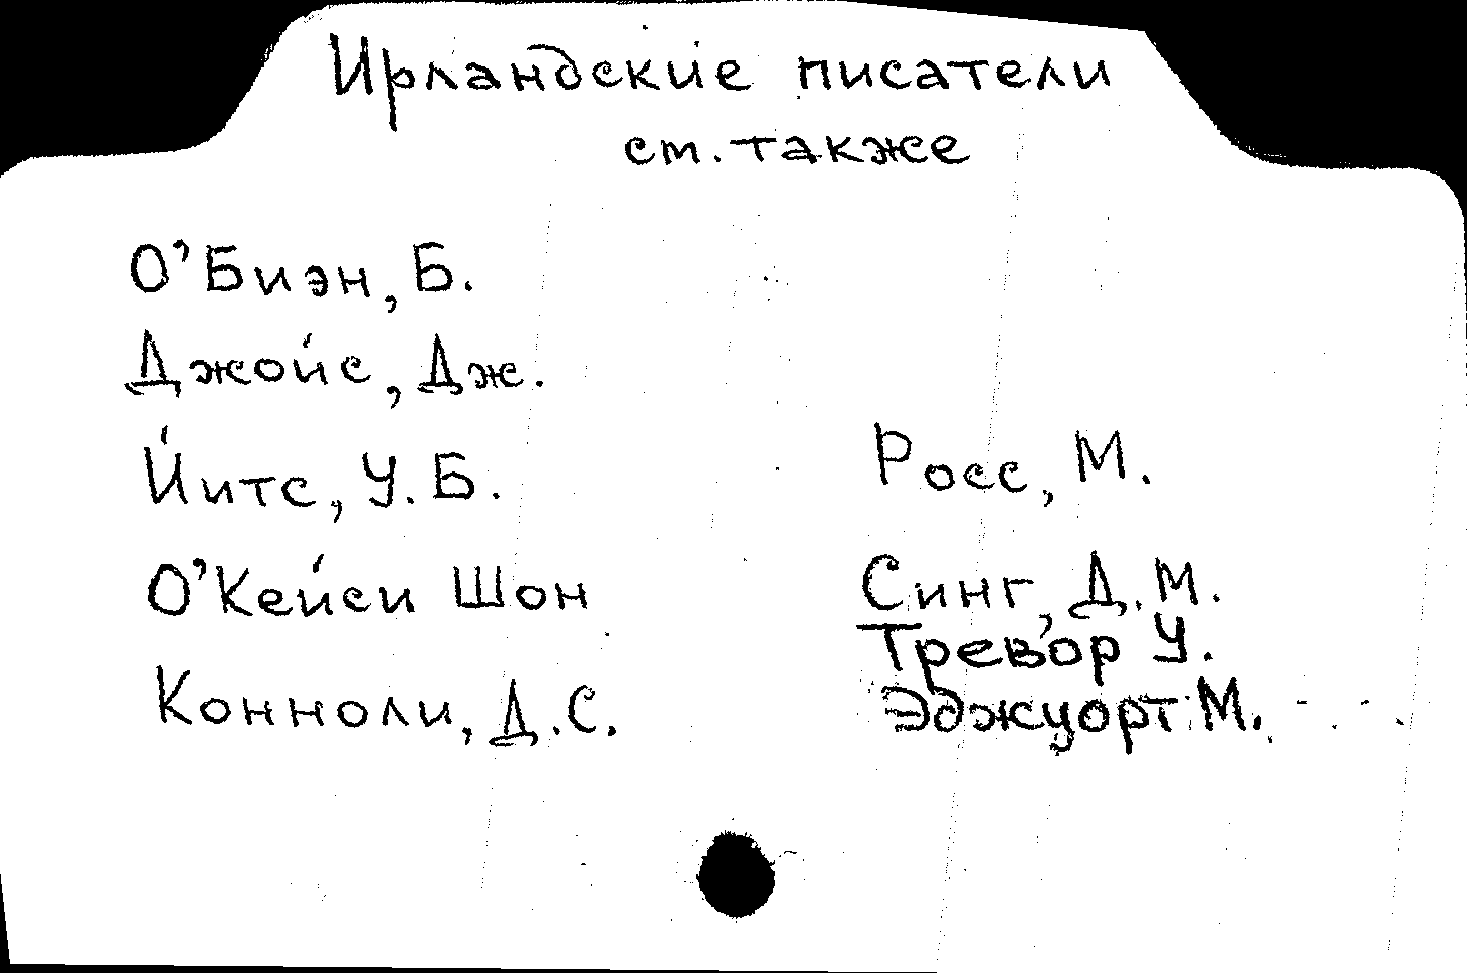 Ирландские писатели
см. также
О'Биэн, Б.
Джойс, Дж.
Йитс, У. Б.
О'Кейси Шон
Конноли, Д. С.
Росс, М.
Синг, Д. М.
Тревор У.
Эджуорт М.